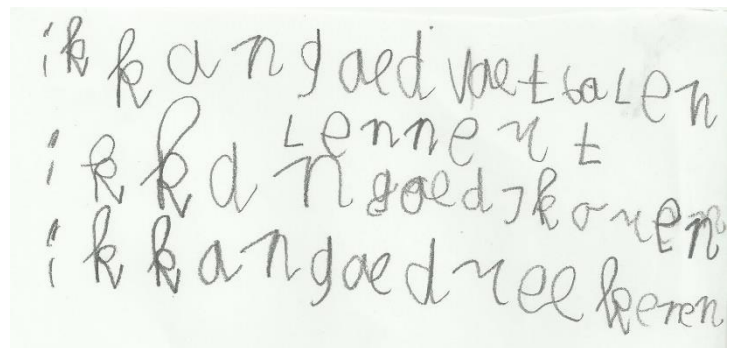 ik kan goed voetbalen
Lennert
ik kan goed skoren
ik kan goed reekeren